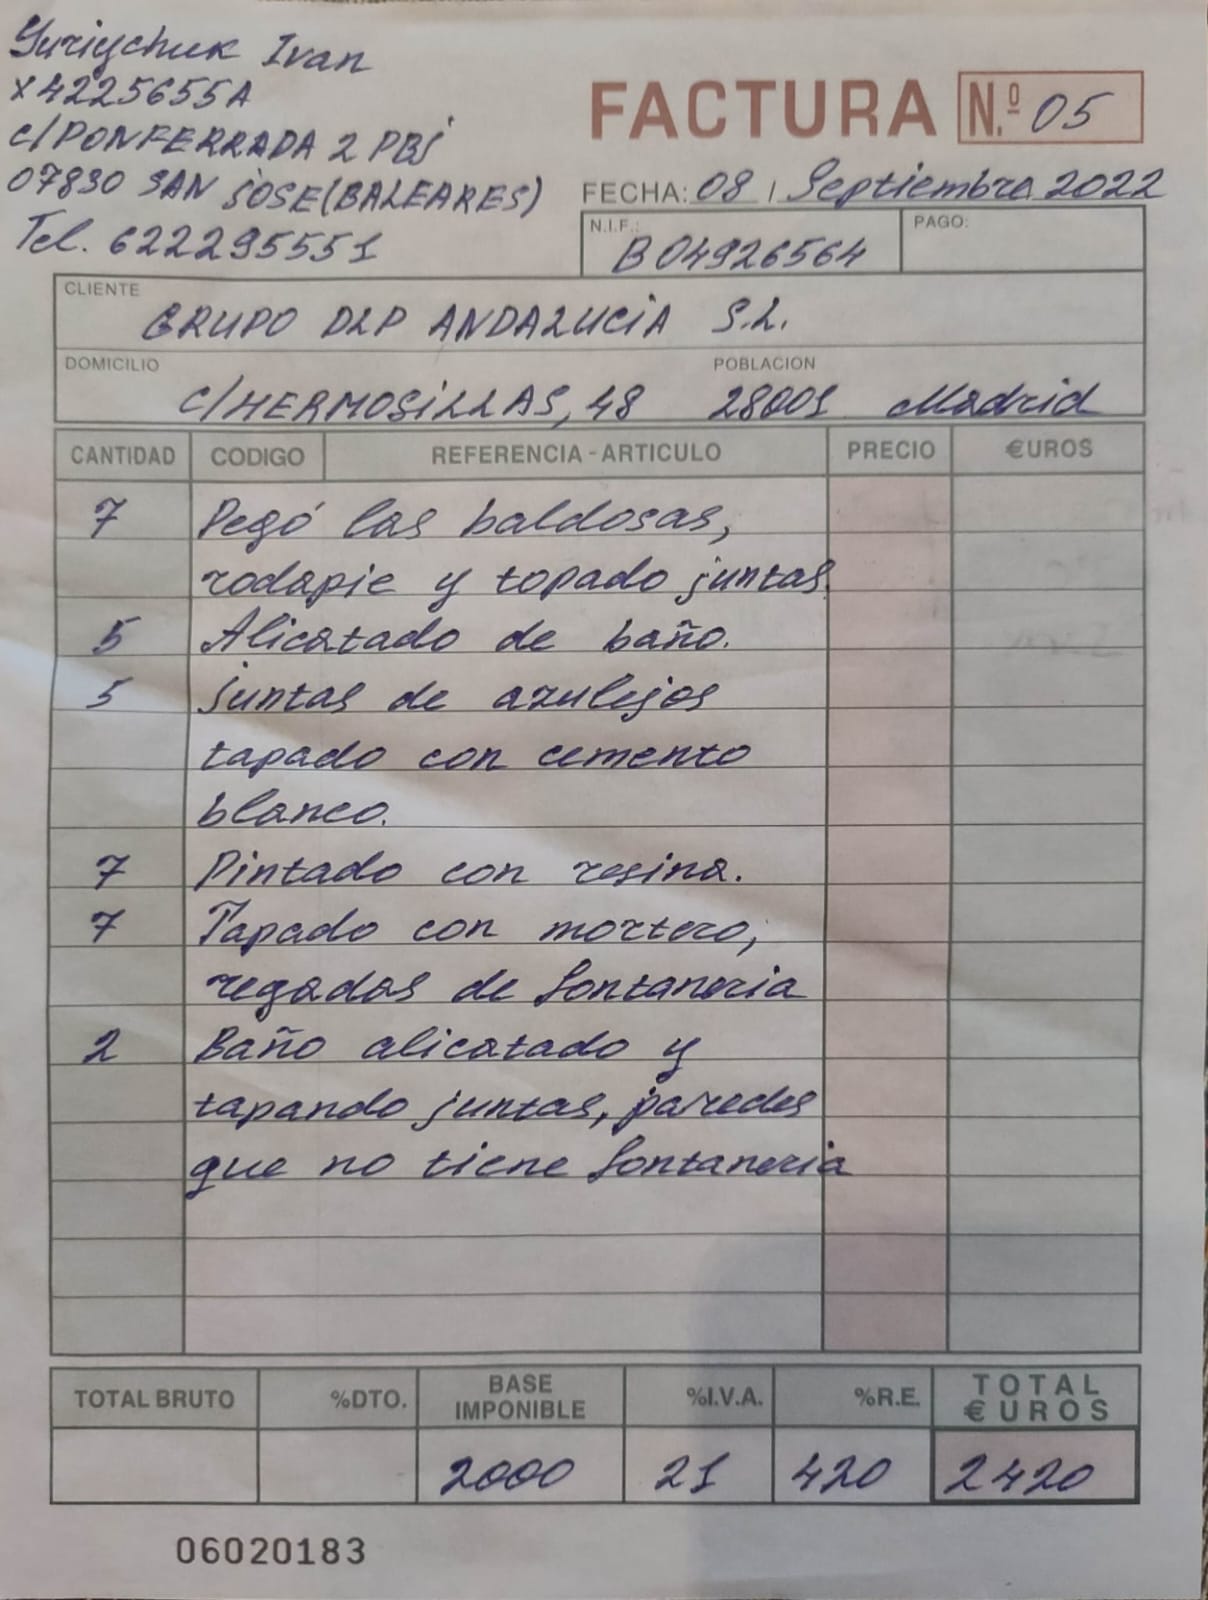 Yuriychuk Ivan
X4225655A
C/PONFERRADA 2 PBJ
07830 SAN JOSE(BALEARES)
Tel. 622295551
FACTURA N.º 05
FECHA: 08 / Septiembre 2022
N.I.F.: B04926564
PAGO:
CLIENTE
GRUPO DLP ANDALUCIA S.L.
DOMICILIO POBLACION
C/HERMOSILLAS, 48 28001 Madrid
CANTIDAD CODIGO REFERENCIA - ARTICULO PRECIO €UROS
7 Pegó las baldosas,
rodapie y topado juntas.
5 Alicatado de baño.
5 juntas de azulejos
tapado con cemento
blanco.
7 Pintado con resina.
7 Tapado con mortero,
regadas de fontaneria
2 Baño alicatado y
tapando juntas, paredes
que no tiene fontaneria
TOTAL BRUTO %DTO. BASE IMPONIBLE %I.V.A. %R.E. TOTAL €UROS
2000 21 420 2420
06020183